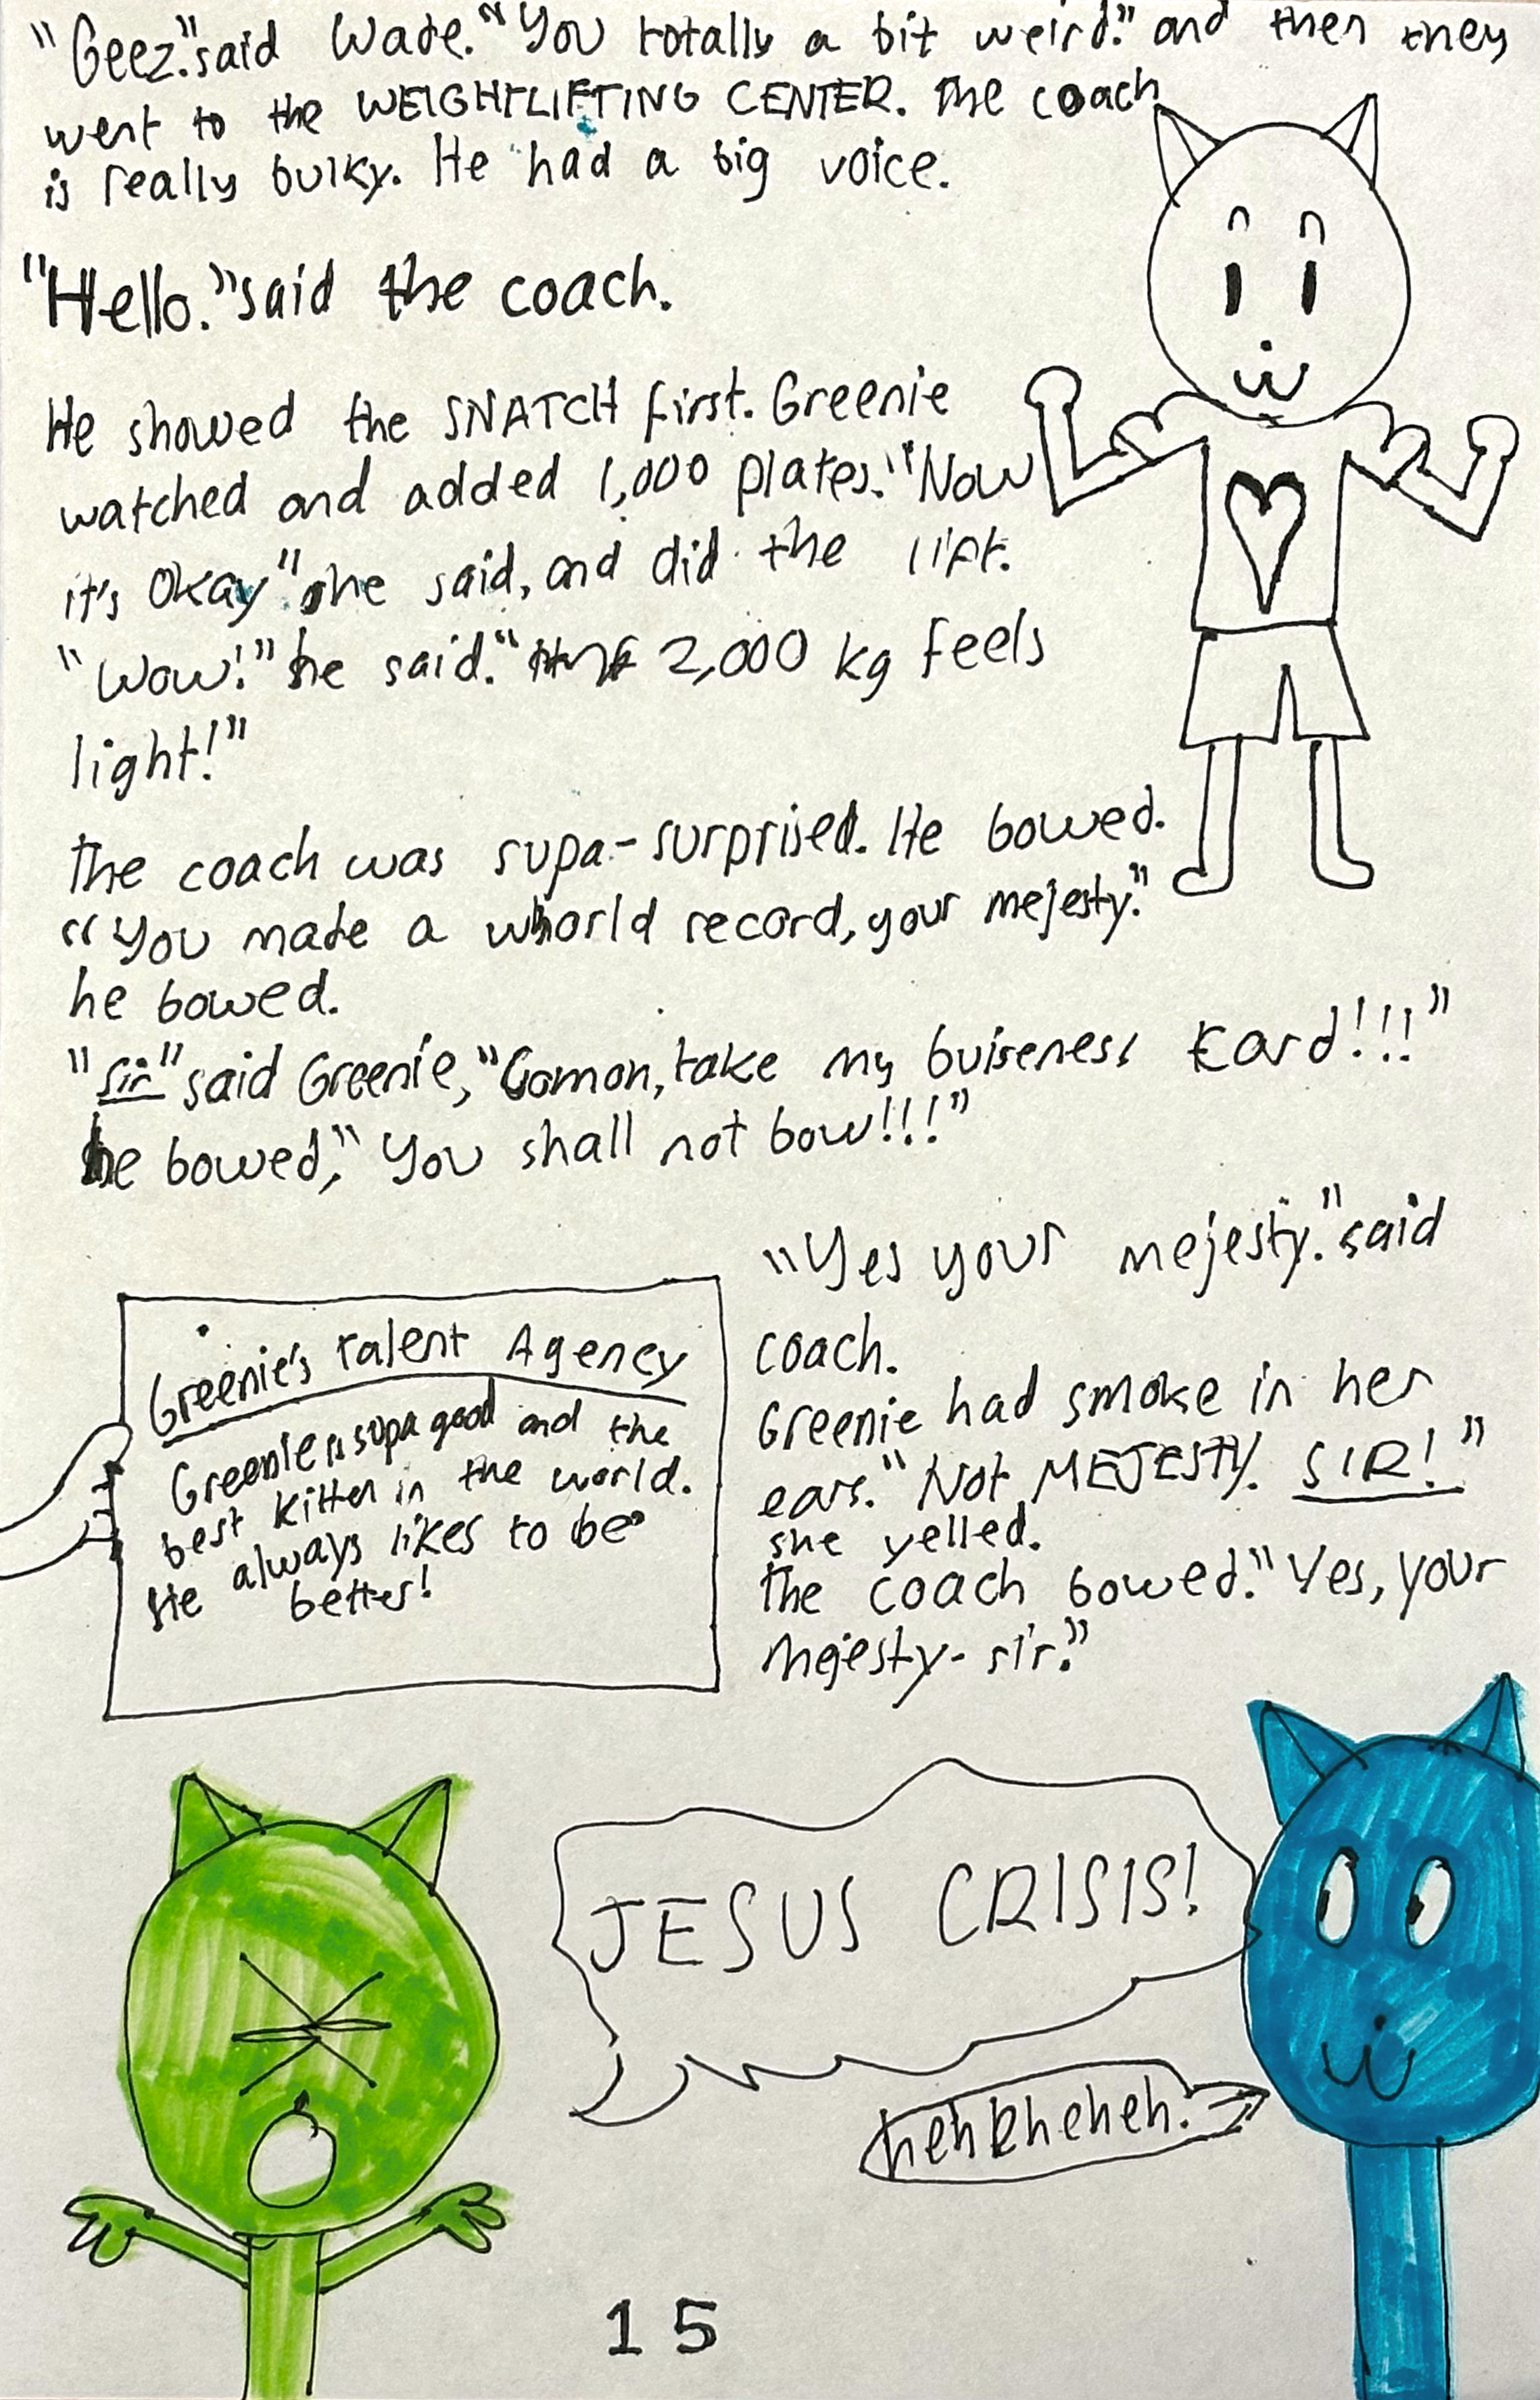 "Geez." said Wade. "You totally a bit weird." and then they
went to the WEIGHTLIFTING CENTER. The coach
is really bulky. He had a big voice.
"Hello." said the coach.
He showed the SNATCH first. Greenie
watched and added 1,000 plates. "Now
it's okay" she said, and did the lift.
"Wow!" he said. " 2,000 kg feels
light!"
The coach was supa-surprised. He bowed.
"You made a world record, your mejesty."
he bowed.
"Sir" said Greenie, "Comon, take my buiseness card!!!"
he bowed, "You shall not bow!!!"
"Yes your mejesty." said
coach.
Greenie had smoke in her
ears. "Not MEJESTY. SIR!"
she yelled.
The coach bowed. "Yes, your
mejesty-sir."
Greenie's Talent Agency
Greenie is supa good and the
best kitten in the world.
He always likes to be
better!
JESUS CRISIS!
heheheheh.
15